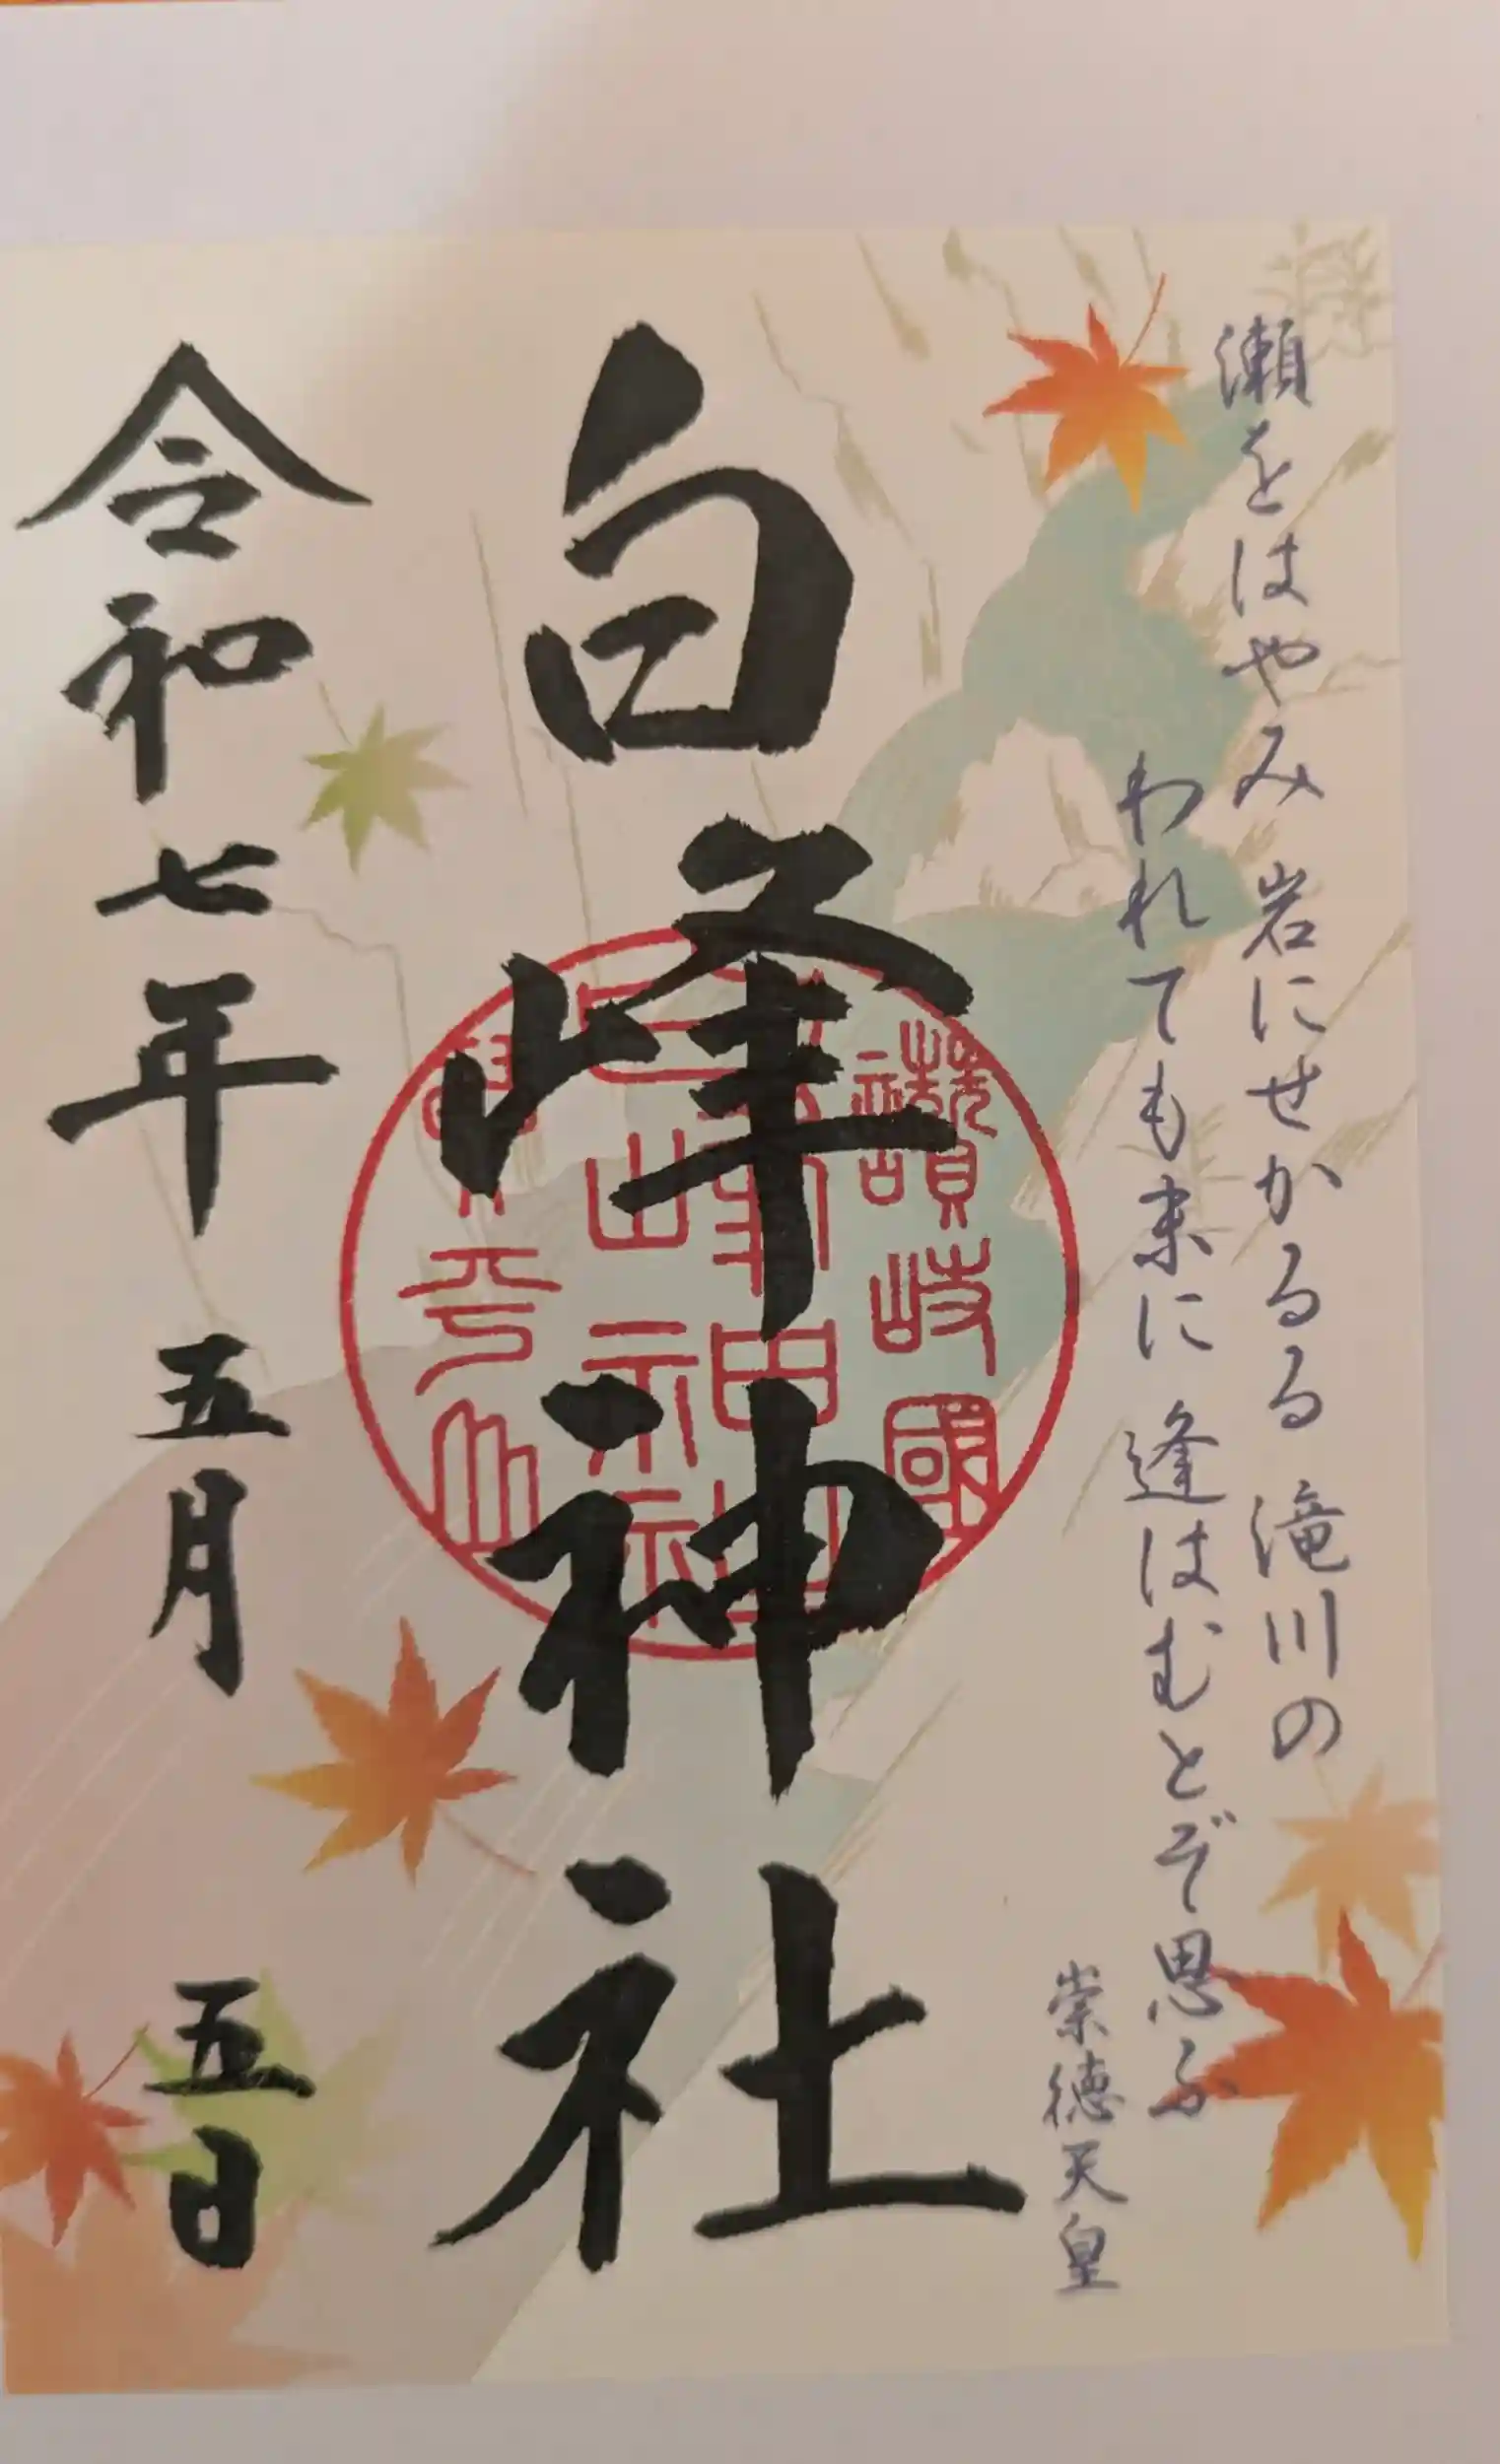 瀬をはやみ 岩にせかるる 滝川の
われても末に 逢はむとぞ思ふ
崇徳天皇
白峰神社
讚岐國
白峰神社
琴平山
令和七年 五月 五日